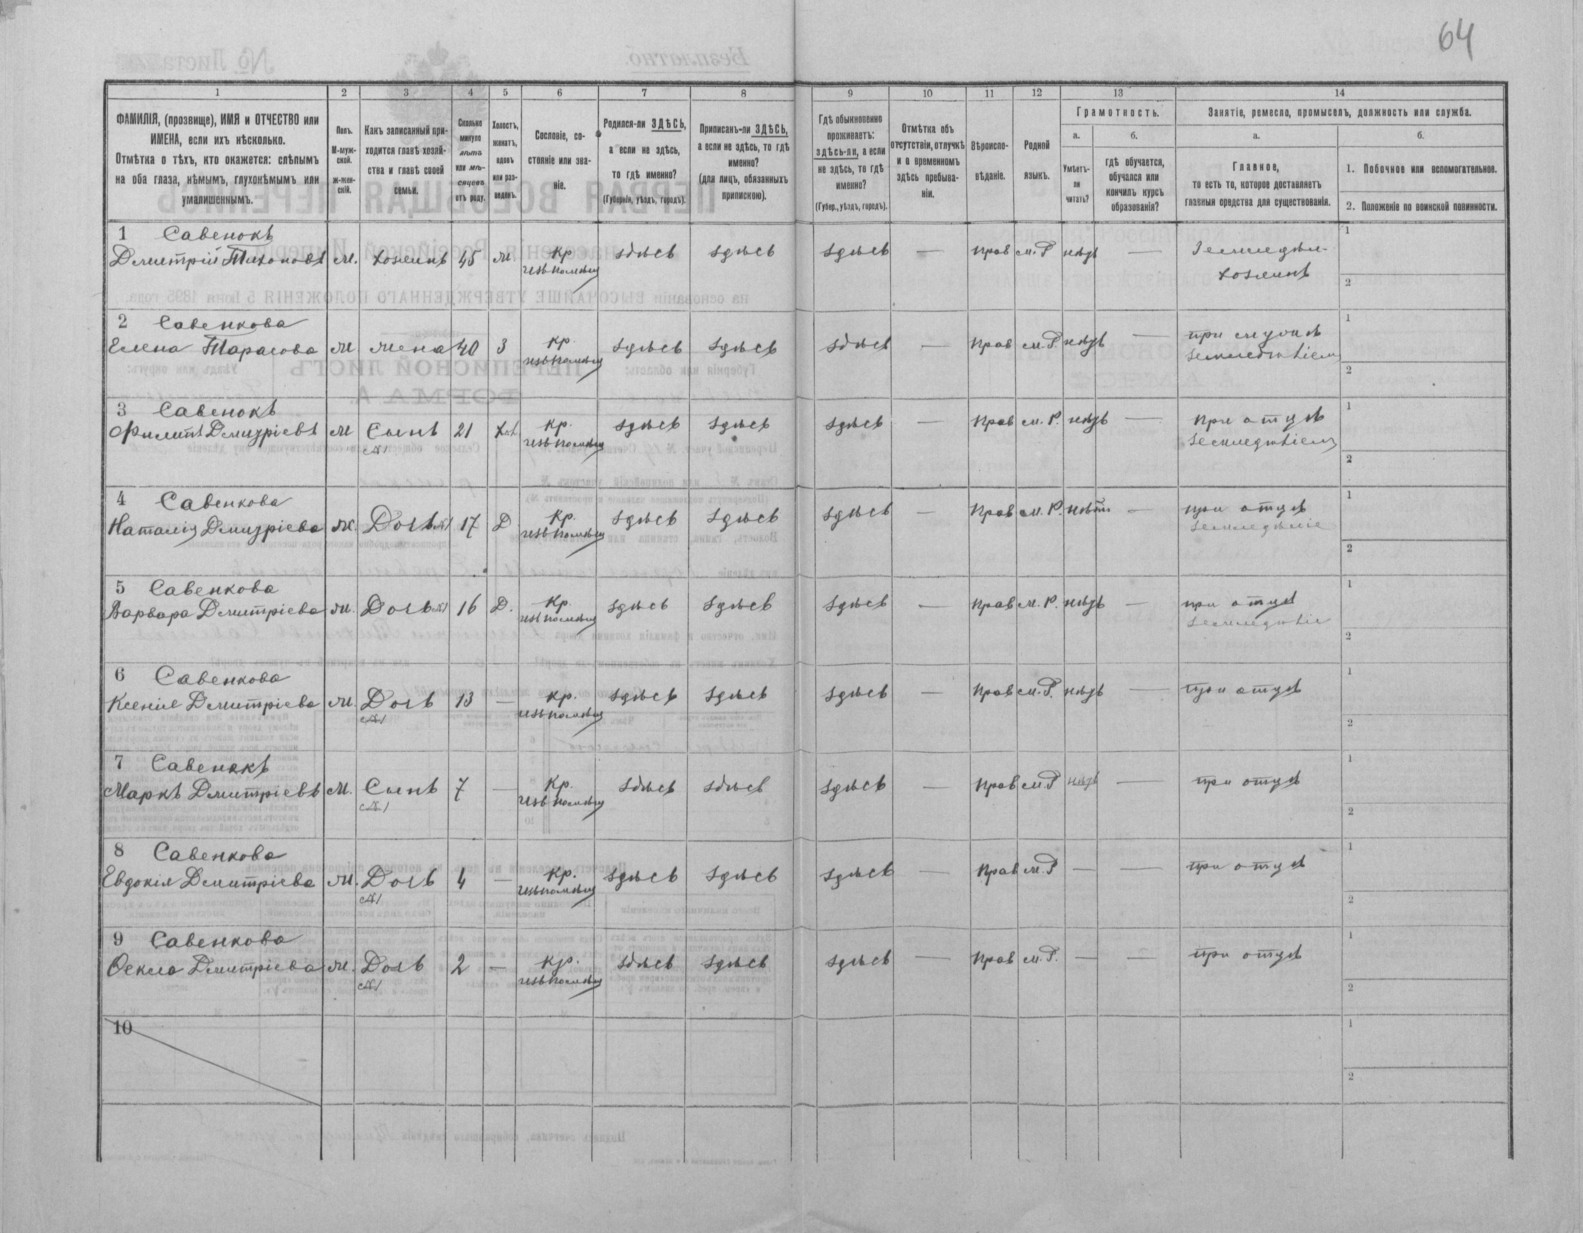 64
1 2 3 4 5 6 7 8 9 10 11 12 13 14
ФАМИЛІЯ, (прозвище), ИМЯ и ОТЧЕСТВО или
ИМЕНА, если ихъ нѣсколько.
Отмѣтка о тѣхъ, кто окажется: слѣпымъ
на оба глаза, нѣмымъ, глухонѣмымъ или
умалишеннымъ.
Полъ.
М-муж-
ской.
Ж-жен-
скій.
Какъ записанный при-
ходится главѣ хозяй-
ства и главѣ своей
семьи.
Сколько
минуло
лѣтъ
или мѣ-
сяцевъ
отъ роду.
Холостъ,
женатъ,
вдовъ
или раз-
веденъ.
Сословіе, со-
стояніе или зва-
ніе.
Родился-ли ЗДѢСЬ,
а если не здѣсь,
то гдѣ именно?
(Губернія, уѣздъ, городъ).
Приписанъ-ли ЗДѢСЬ,
а если не здѣсь, то гдѣ
именно?
(для лицъ, обязанныхъ
припискою).
Гдѣ обыкновенно
проживаетъ:
здѣсь-ли, а если
не здѣсь, то гдѣ
именно?
(Губер., уѣздъ, городъ).
Отмѣтка объ
отсутствіи, отлучкѣ
и о временномъ
здѣсь пребыва-
ніи.
Вѣроиспо-
вѣданіе.
Родной
языкъ.
Грамотность.
а.
Умѣетъ-
ли
читать?
б.
гдѣ обучается,
обучался или
кончилъ курсъ
образованія?
Занятіе, ремесло, промыселъ, должность или служба.
а.
Главное,
то есть то, которое доставляетъ
главныя средства для существованія.
б.
1. Побочное или вспомогательное.
2. Положеніе по воинской повинности.
1 Савенокъ
Дмитрій Тихоновъ м. хозяинъ 45 ж Кр. здѣсь здѣсь здѣсь — Прав м.Р. нѣтъ — Земледѣл.
изъ помѣщ хозяинъ
1
2
2 Савенкова
Елена Тарасова ж жена 40 З Кр. здѣсь здѣсь здѣсь — Прав м.Р. нѣтъ — при мужѣ
изъ помѣщ земледѣліем
1
2
3 Савенокъ
Филипъ Дмитріевъ м Сынъ 21 Хол. Кр. здѣсь здѣсь здѣсь — Прав м.Р. нѣтъ — При отцѣ
с №1 изъ помѣщ земледѣліем
1
2
4 Савенкова
Наталія Дмитріева ж. Дочь с №1 17 Д Кр. здѣсь здѣсь здѣсь — Прав м.Р. нѣтъ — при отцѣ
изъ помѣщ земледѣліе
1
2
5 Савенкова
Варвара Дмитріева ж. Дочь с №1 16 Д. Кр. здѣсь здѣсь здѣсь — Прав м.Р. нѣтъ — при отцѣ
изъ помѣщ земледѣліе
1
2
6 Савенкова
Ксенія Дмитріева ж. Дочь 13 — Кр. здѣсь здѣсь здѣсь — Прав м.Р. нѣтъ — при отцѣ
с №1 изъ помѣщ
1
2
7 Савенокъ
Маркъ Дмитріевъ м. Сынъ 7 — Кр. здѣсь здѣсь здѣсь — Прав м.Р нѣтъ — при отцѣ
с №1 изъ помѣщ
1
2
8 Савенкова
Евдокія Дмитріева ж. Дочь 4 — Кр. здѣсь здѣсь здѣсь — Прав м.Р — — при отцѣ
с №1 изъ помѣщ
1
2
9 Савенкова
Ѳекла Дмитріева ж. Дочь 2 — Кр. здѣсь здѣсь здѣсь — Прав м.Р. — — при отцѣ
с №1 изъ помѣщ
1
2
10
1
2